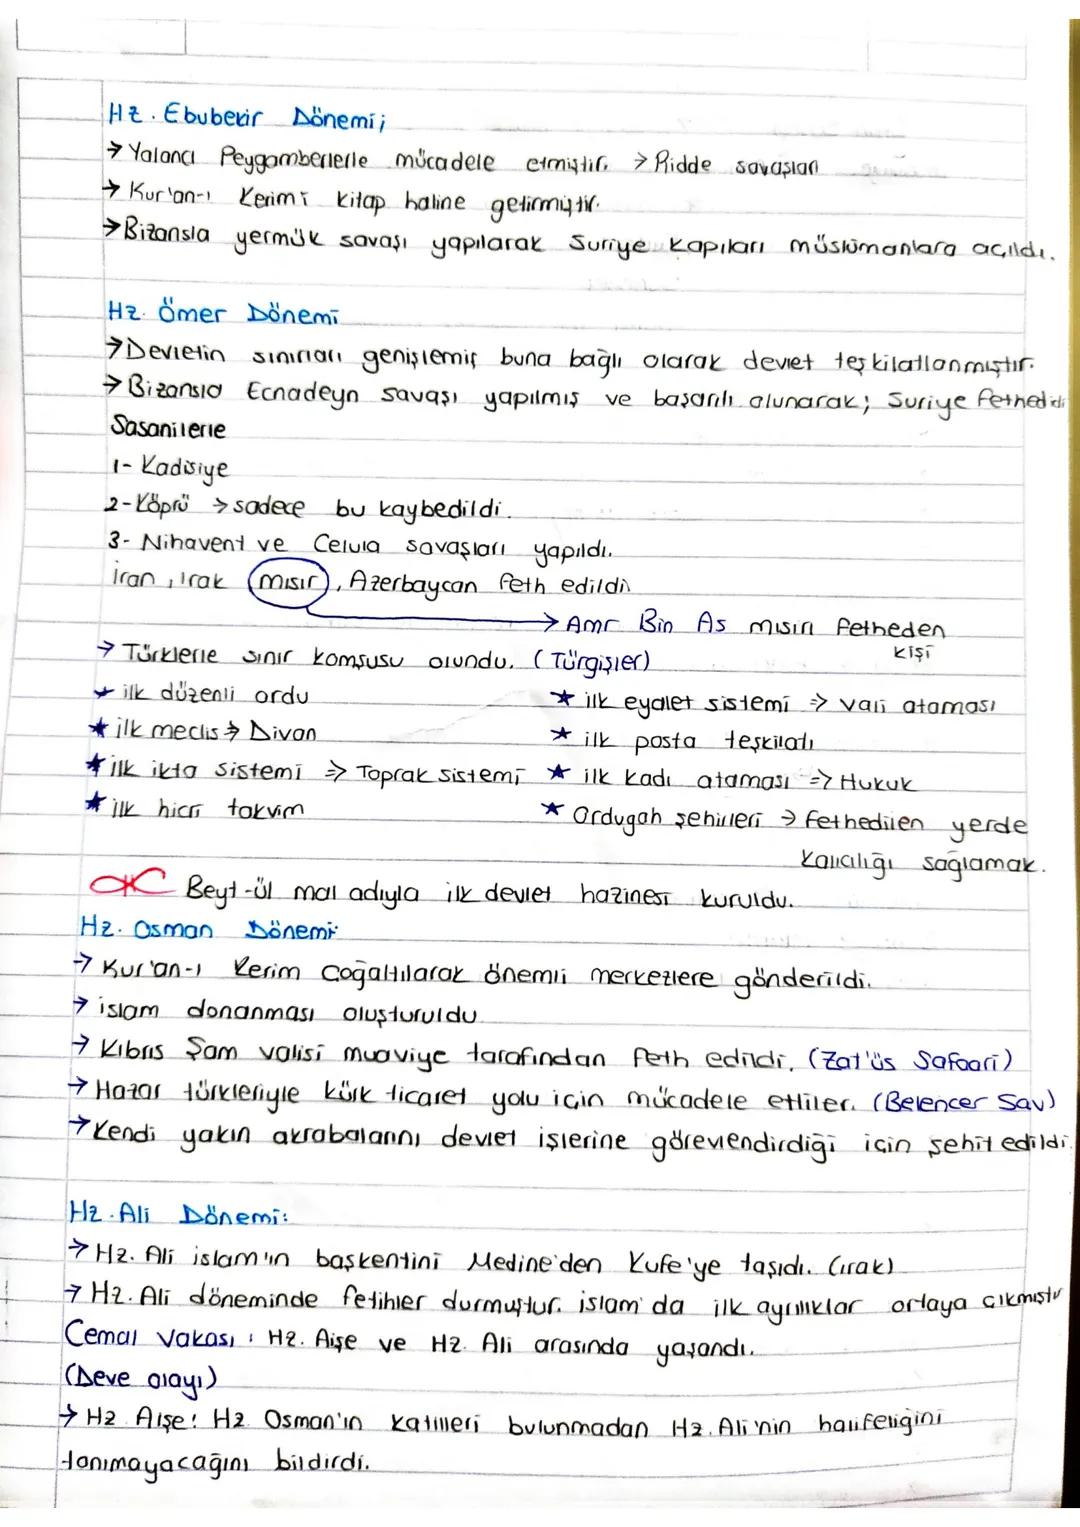 Hz. Ebubekir Dönemi;
→ Yalancı Peygamberlerle mücadele etmiştir. → Ridde savaşları
→ Kur'an-ı Kerimi kitap haline getirmiştir.
→ Bizansla yermük savaşı yapılarak Suriye kapıları müslümanlara açıldı.
Hz. Ömer Dönemi
→ Devletin sınırları genişlemiş buna bağlı olarak devlet teşkilatlanmıştır.
→ Bizansla Ecnadeyn savaşı yapılmış ve başarılı olunarak; Suriye fethedidi
Sasanilerle
1- Kadisiye
2- Köprü → sadece bu kaybedildi.
3- Nihavent ve Celula savaşları yapıldı.
iran, ırak mısır, Azerbaycan feth edildi.
→ Amr Bin As mısırı fetheden kişi
→ Türklerle sınır komşusu olundu. (Türgişler)
★ ilk düzenli ordu ★ ilk eyalet sistemi ⇒ vali ataması
★ ilk meclis ⇒ Divan ★ ilk posta teşkilatı
★ ilk ikta sistemi ⇒ Toprak sistemi ★ ilk kadı ataması ⇒ Hukuk
★ ilk hicri takvim ★ Ordugah şehirleri → fethedilen yerde kalıcılığı sağlamak.
Beyt-ül mal adıyla ilk devlet hazinesi kuruldu.
Hz. Osman Dönemi:
→ Kur'an-ı Kerim çoğaltılarak önemli merkezlere gönderildi.
→ islam donanması oluşturuldu.
→ Kıbrıs Şam valisi muaviye tarafından feth edildi. (Zat'üs Safaari)
→ Hazar türkleriyle kürk ticaret yolu için mücadele ettiler. (Belencer Sav)
→ Kendi yakın akrabalarını devlet işlerine görevlendirdiği için şehit edildi.
Hz. Ali Dönemi:
→ Hz. Ali islam'ın başkentini Medine'den Kufe'ye taşıdı. (ırak)
→ Hz. Ali döneminde fetihler durmuştur. islam'da ilk ayrılıklar ortaya çıkmıştır
Cemal Vakası: Hz. Aişe ve Hz. Ali arasında yaşandı.
(Deve olayı)
→ Hz Aişe: Hz. Osman'ın katilleri bulunmadan Hz. Ali'nin halifeliğini
tanımayacağını bildirdi.